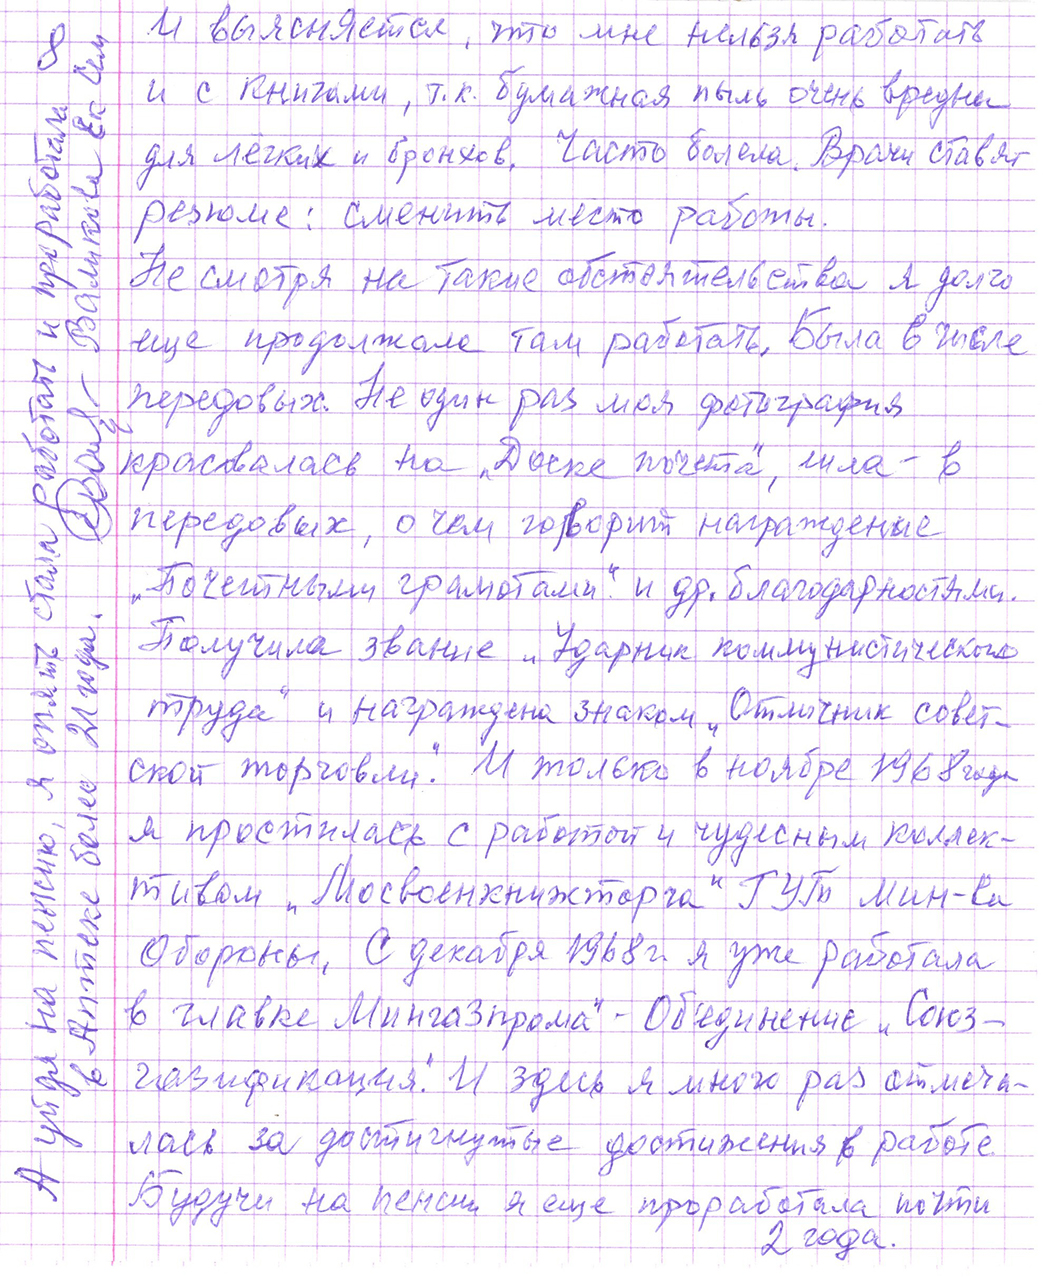 И выясняется, что мне нельзя работать
и с книгами, т.к. бумажная пыль очень вредна
для лёгких и бронхов. Часто болела. Врачи ставят
резюме: сменить место работы.
Не смотря на такие обстоятельства я долго
еще продолжала там работать. Была в числе
передовых. Не один раз моя фотография
красовалась на „Доске почета“, шла - в
передовых, о чем говорит награждение
„Почетными грамотами“ и др. благодарностями.
Получила звание „Ударник коммунистического
труда“ и награждена знаком „Отличник совет-
ской торговли“. И только в ноябре 1968 года
я простилась с работой и чудесным коллек-
тивом „Мосвоенкнижторга“ ГУТ Мин-ва
Обороны. С декабря 1968 г. я уже работала
в главке Мингазпрома“ - Объединение „Союз-
газификация“. И здесь я много раз отмеча-
лась за достигнутые достижения в работе.
Будучи на пенсии я еще проработала почти
2 года.
А уйдя на пенсию, я опять стала работать и проработала 8
в Аптеке более 21 года. Валикова Ек Сем